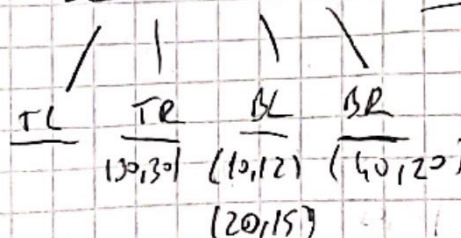 TL TR BL BR
(30,30) (10,12) (40,20)
(20,15)